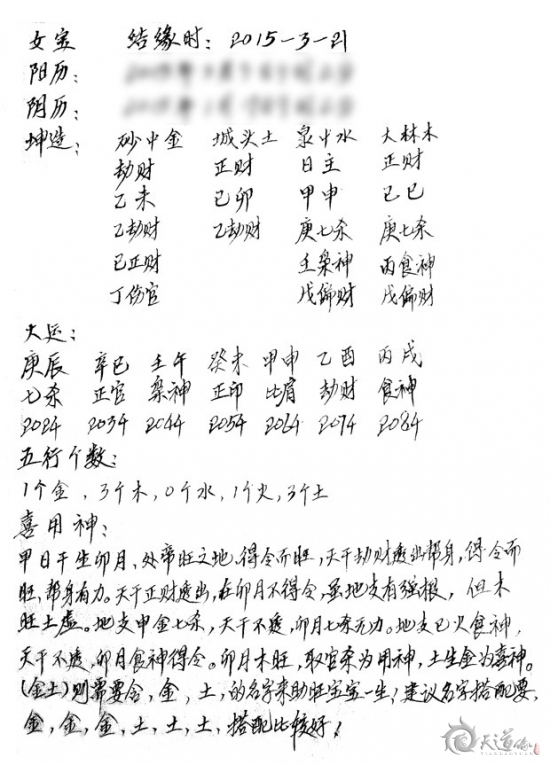 女宝 结缘时：2015-3-21
阳历：
阴历：
坤造： 砂中金 城头土 泉中水 大林木
劫财 正财 日主 正财
乙未 己卯 甲申 己巳
乙劫财 乙劫财 庚七杀 庚七杀
己正财 壬枭神 丙食神
丁伤官 戊偏财 戊偏财
大运：
庚辰 辛巳 壬午 癸未 甲申 乙酉 丙戌
七杀 正官 枭神 正印 比肩 劫财 食神
2024 2034 2044 2054 2064 2074 2084
五行个数：
1个金，3个木，0个水，1个火，3个土
喜用神：
甲日干生卯月、处帝旺之地、得令而旺，天干劫财透出帮身，得令而
旺、帮身有力。天干正财透出，在卯月不得令，虽地支有强根，但木
旺土虚。地支申金七杀，天干不透，卯月七杀无力。地支巳火食神，
天干不透，卯月食神得令。卯月木旺，取官杀为用神，土生金为喜神。
(金土)则需要含，金，土，的名字来助旺宝宝一生！建议名字搭配要，
金，金，金，土，土，土，搭配比较好！
天道